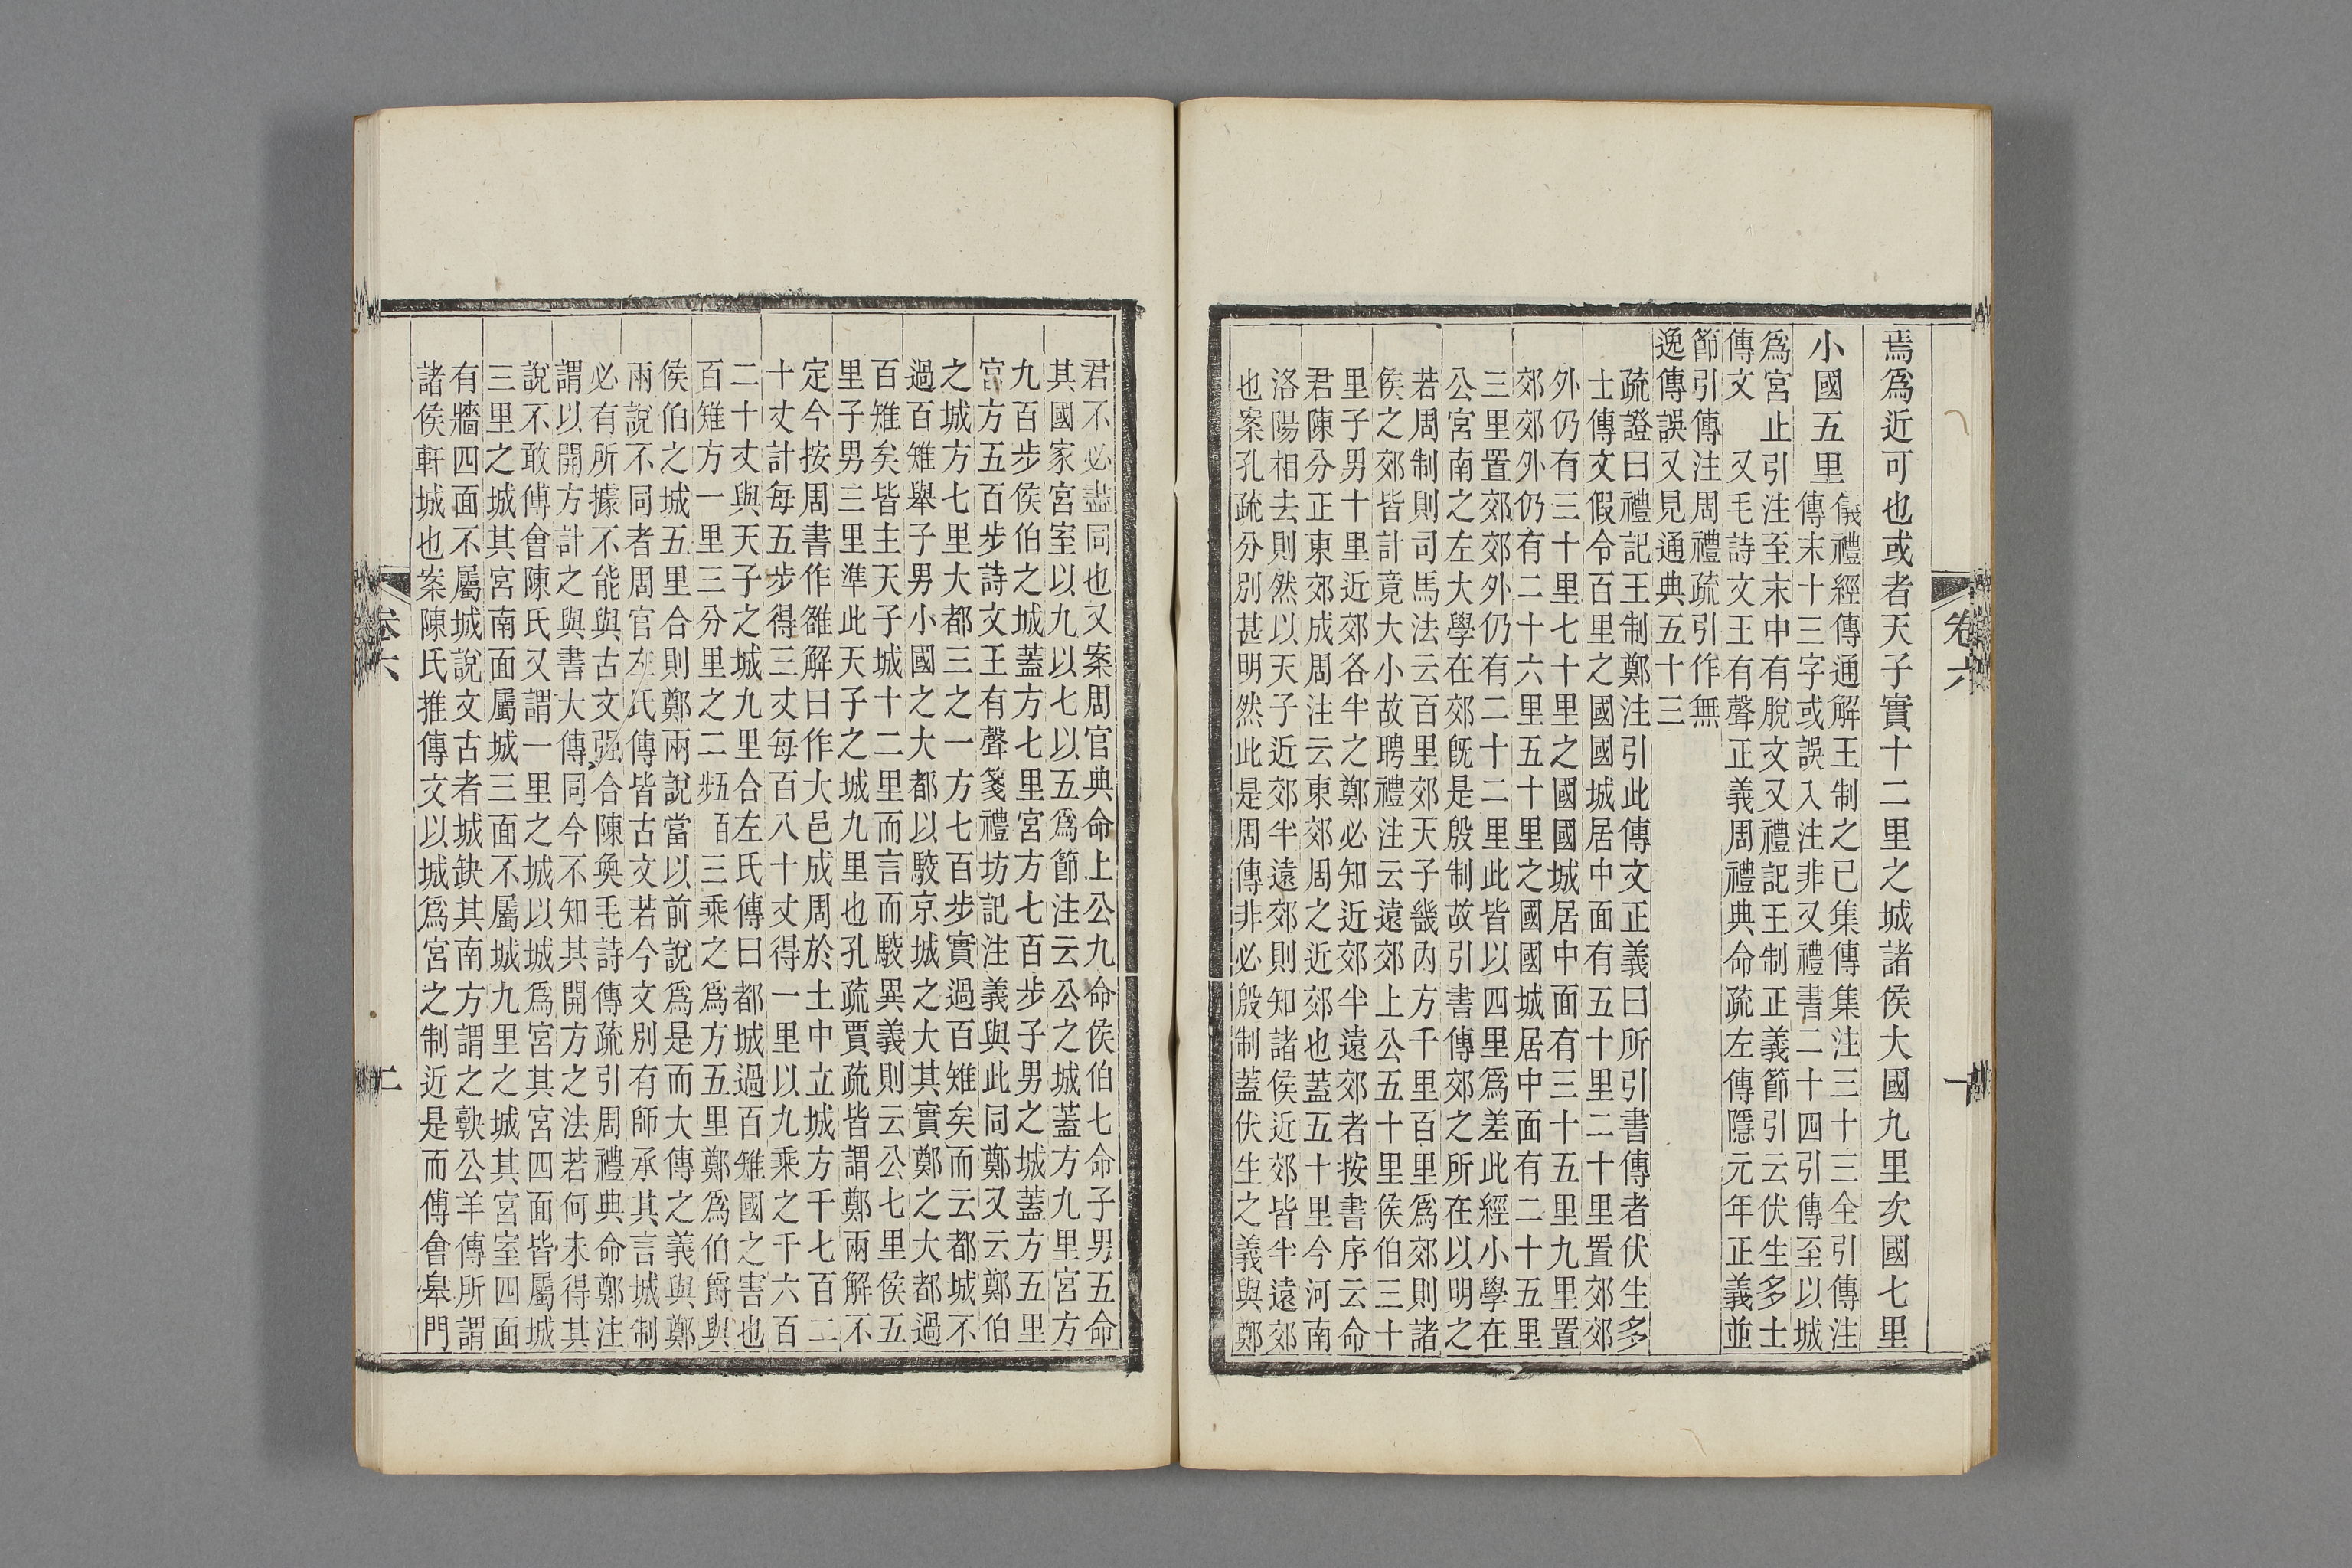 卷六
一
焉爲近可也或者天子實十二里之城諸侯大國九里次國七里
小國五里
儀禮經傳通解王制之已集傳集注三十三全引傳注
傳末十三字或誤入注非又禮書二十四引傳至以城
爲宮止引注至末中有脫文又禮記王制正義節引云伏生多士
傳文　又毛詩文王有聲正義周禮典命疏左傳隱元年正義並
節引傳注周禮疏引作無
逸傳誤又見通典五十三
疏證曰禮記王制鄭注引此傳文正義曰所引書傳者伏生多
士傳文假令百里之國國城居中面有五十里二十里置郊郊
外仍有三十里七十里之國國城居中面有三十五里九里置
郊郊外仍有二十六里五十里之國國城居中面有二十五里
三里置郊郊外仍有二十二里此皆以四里爲差此經小學在
公宮南之左大學在郊旣是殷制故引書傳郊之所在以明之
若周制則司馬法云百里郊天子畿內方千里百里爲郊則諸
侯之郊皆計竟大小故聘禮注云遠郊上公五十里侯伯三十
里子男十里近郊各半之鄭必知近郊半遠郊者按書序云命
君陳分正東郊成周注云東郊周之近郊也蓋五十里今河南
洛陽相去則然以天子近郊半遠郊則知諸侯近郊皆半遠郊
也案孔疏分別甚明然此是周傳非必殷制蓋伏生之義與鄭
君不必盡同也又案周官典命上公九命侯伯七命子男五命
其國家宮室以九以七以五爲節注云公之城蓋方九里宮方
九百步侯伯之城蓋方七里宮方七百步子男之城蓋方五里
宮方五百步詩文王有聲箋禮坊記注義與此同鄭又云鄭伯
之城方七里大都三之一方七百步實過百雉矣而云都城不
過百雉舉子男小國之大都以駮京城之大其實鄭之大都過
百雉矣皆主天子城十二里而言而駮異義則云公七里侯五
里子男三里準此天子之城九里也孔疏賈疏皆謂鄭兩解不
定今按周書作雒解曰作大邑成周於土中立城方千七百二
十丈計每五步得三丈每百八十丈得一里以九乘之千六百
二十丈與天子之城九里合左氏傳曰都城過百雉國之害也
百雉方一里三分里之二頻百三乘之爲方五里鄭爲伯爵與
侯伯之城五里合則鄭兩說當以前說爲是而大傳之義與鄭
兩說不同者周官左氏傳皆古文若今文別有師承其言城制
必有所據不能與古文强合陳奐毛詩傳疏引周禮典命鄭注
謂以開方計之與書大傳同今不知其開方之法若何未得其
說不敢傅會陳氏又謂一里之城以城爲宮其宮四面皆屬城
三里之城其宮南面屬城三面不屬城九里之城其宮室四面
有牆四面不屬城說文古者城缺其南方謂之䧐公羊傳所謂
諸侯軒城也案陳氏推傳文以城爲宮之制近是而傅會皋門
卷六
二